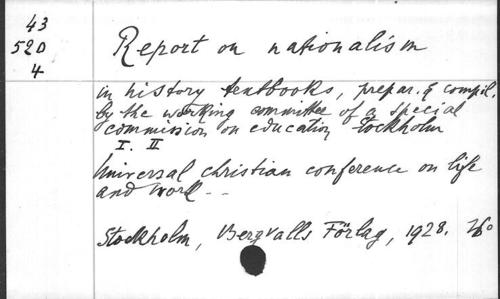 43
520
4
Report on nationalism
in history textbooks, prepar. & compil.
by the working committee of a special
commission on education Stockholm
I. II
Universal christian conference on life
and work --
Stockholm, Bergvalls Förlag, 1928.